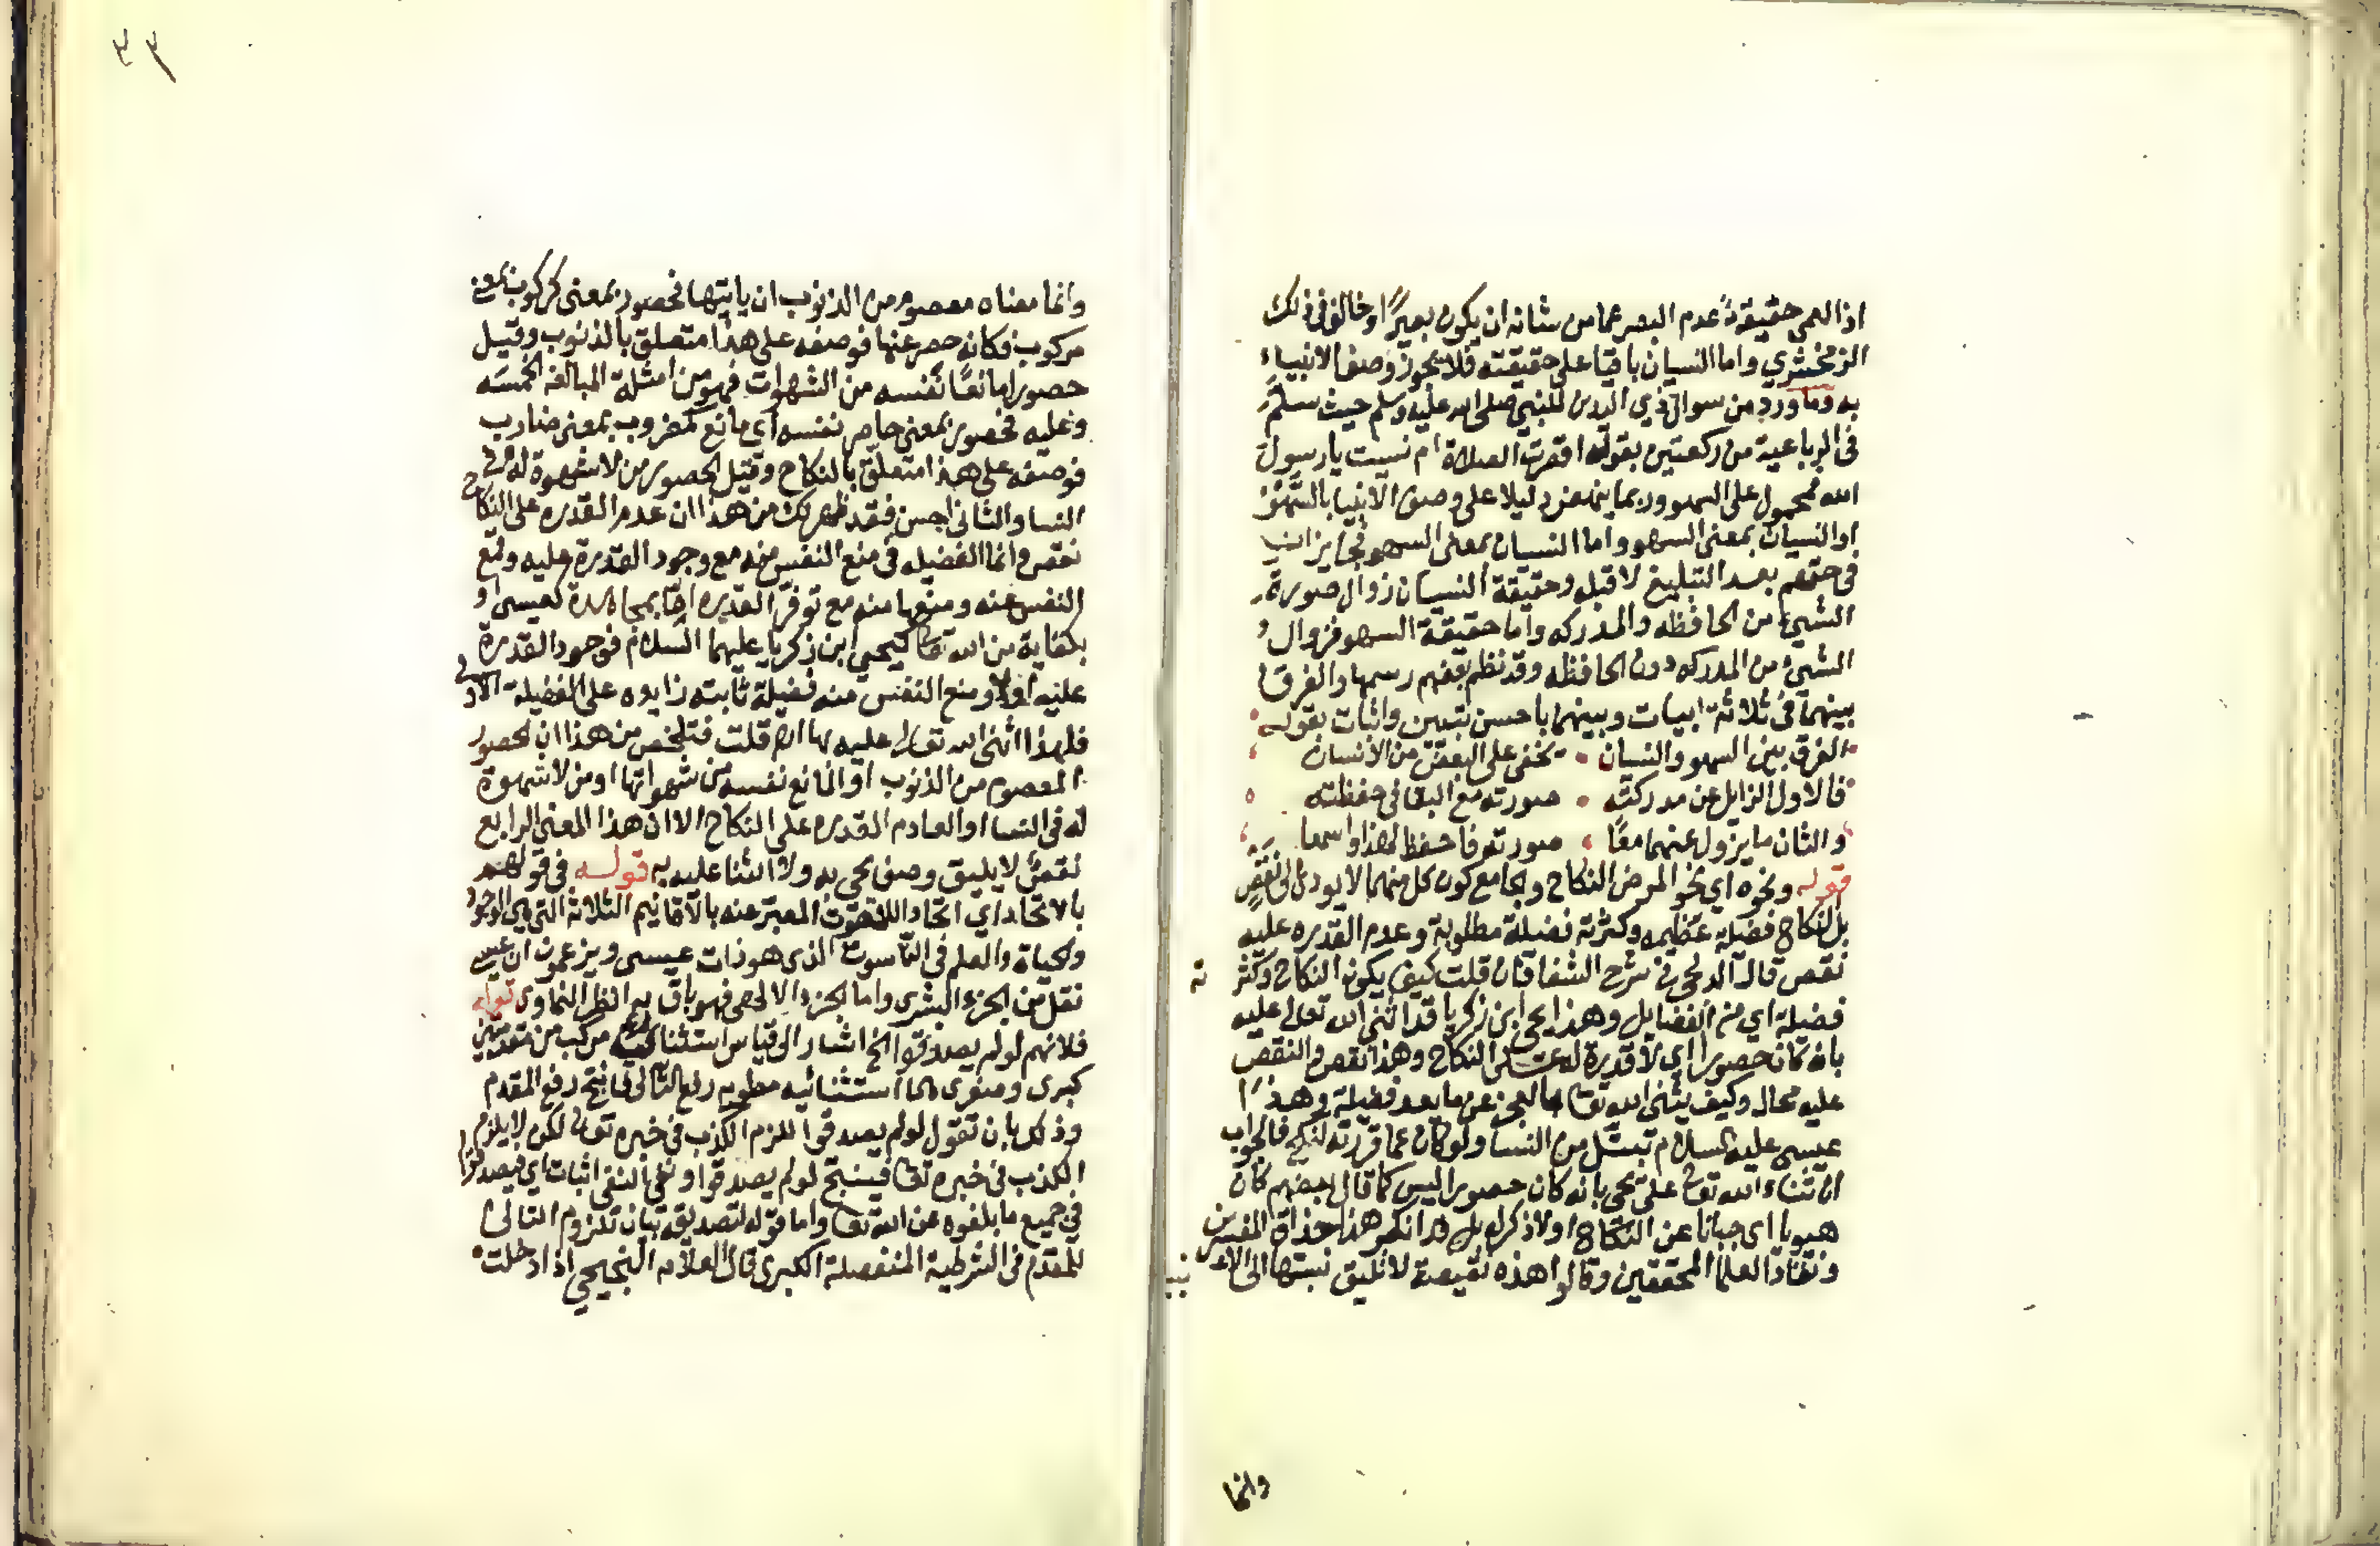 اذ العمى حقيقة عدم البصر عما من شانه ان يكون بصيرا وخالف في ذلك
الزمخشري واما النسيان باقيا على حقيقته فلا يجوز وصف الانبياء
به وما ورد من سوال ذي اليدين للنبي صلى الله عليه وسلم حيث سلم
في الرباعية من ركعتين بقوله اقصرت الصلاة ام نسيت يا رسول
الله فمحمول على السهو وربما ينهض دليلا على وصف الانبيا بالسهو
او النسيان بمعنى السهو واما النسيان بمعنى السهو فجايز ايضا
في حقهم بعد التبليغ لا قبله وحقيقة النسيان زوال صورة
الشيء من الحافظه والمدركه واما حقيقة السهو فزوال
الشيء من المدركه دون الحافظه وقد نظم بعضهم رسمها والفرق
بينهما في ثلاثة ابيات وبينهما باحسن تبيين واثبات بقوله
الفرق بين السهو والنسيان تخفى على البعض من الانسان
فالاول الزايل عن مدركته صورته مع البقا في حفظته
والثان ما يزول عنهما معا صورته فاحفظ لهذا واسمعا
قوله ونحوه اي نحو المرض النكاح والجامع كون كل منهما لا يودي الى نقص
بل النكاح فضيلة عظيمه وكثرته فضيلة مطلوبة وعدم القدره عليه
نقص قال الدلجي في شرح الشفا فان قلت كيف يكون النكاح وكثرته
فضيلة اي من الفضايل وهذا يحيى ابن زكريا قد اثنى الله تعالى عليه
بانه كان حصورا اي لا قدرة له على النكاح وهذا نقص والنقص
عليه محال وكيف يثني الله تعا بالعجز عن ما يعد فضيلة وهذا
عيسى عليه السلام تبتل من النسا ولو كان كما قررته لنكح فالجواب
ان ثناء الله تعا على يحيى بانه كان حصورا ليس كما قال بعضهم كان
هيوبا اي جبانا عن النكاح او لا ذكر له بل قد انكر هذا حذاق المفسرين
ونقاد العلما المحققين وقالوا هذه نقيصة لا تليق نسبتها الى الانبيا
وانما
٣٣
وانما معناه معصوم من الذنوب ان ياتيها فحصور بمعنى كركوب بمعنى
مركوب فكانه حصر عنها فوصفه على هذا متعلق بالذنوب وقيل
حصورا مانعا نفسه من الشهوات فهو من امثلة المبالغه الخمسه
وعليه فحصور بمعنى حاصر نفسه اي مانع كضروب بمعنى ضارب
فوصفه على هذا متعلق بالنكاح وقيل الحصور من لا شهوة له في
النسا والثاني احسن فقد ظهر لك من هذا ان عدم القدره على النكاح
نقص وانما الفضيله في منع النفس منه مع وجود القدرة عليه وقمع
النفس عنه ومنعها منه مع توفر القدره اما بمجاهدة كعيسى او
بكفاية من الله تعا كيحيى ابن زكريا عليهما السلام فوجود القدرة
عليه اولا ومنع النفس منه فضيلة ثابته زايده على الفضيلة الاولى
فلهذا اثنى الله تعالى عليه بها قلت فتلخص من هذا ان الحصور
المعصوم من الذنوب او المانع نفسه من شهواتها او من لا شهوة
له في النسا او العادم القدره على النكاح الا ان هذا المعنى الرابع
نقص لا يليق وصف يحيى به ولا الثنا عليه به قوله في قولهم
بالاتحاد اي اتحاد اللاهوت المعبر عنه بالاقانيم الثلاثة التي هي الوجود
والحياة والعلم في الناسوت الذي هو ذات عيسى ويزعمون ان عيسى
نقل من الجزء البشري واما الجزء الالهي فهو باق به انظر النفراوي قوله
فلانهم لو لم يصدقوا الخ اشار الى قياس استثناى مركب من مقدمتين
كبرى وصغرى استثنائيه مطويه رفع التالي فانتج رفع المقدم
وذلك بان تقول لو لم يصدقوا للزم الكذب في خبره تعا لكن لا يلزم
الكذب في خبره تعا فينتج لو لم يصدقوا ونفي النفي اثبات اي فيصدقوا
في جميع ما بلغوه عن الله تعا واما قوله لتصديقه بيان تلزوم التالي
للمقدم في الشرطية المنفصلة الكبرى قال العلامه اذا دخلت